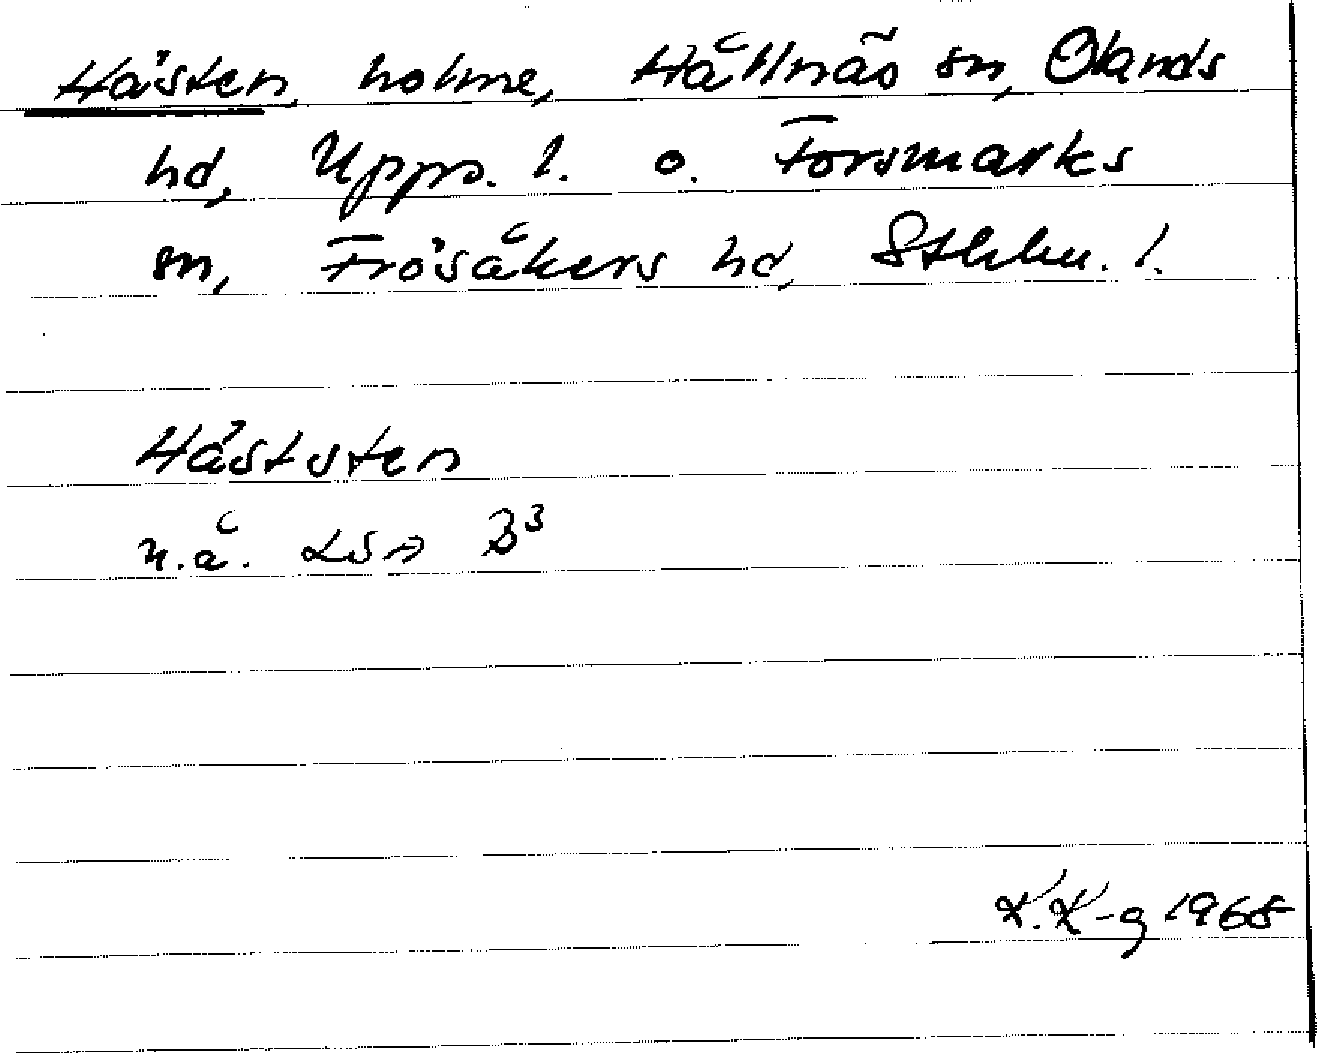 Hästen, holme, Hållnäs sn, Olands
hd, Upps. l. o. Forsmarks
sn, Frösåkers hd, Sthlm. l.
Häststen
n.å. LSA B³
K.K-g 1968